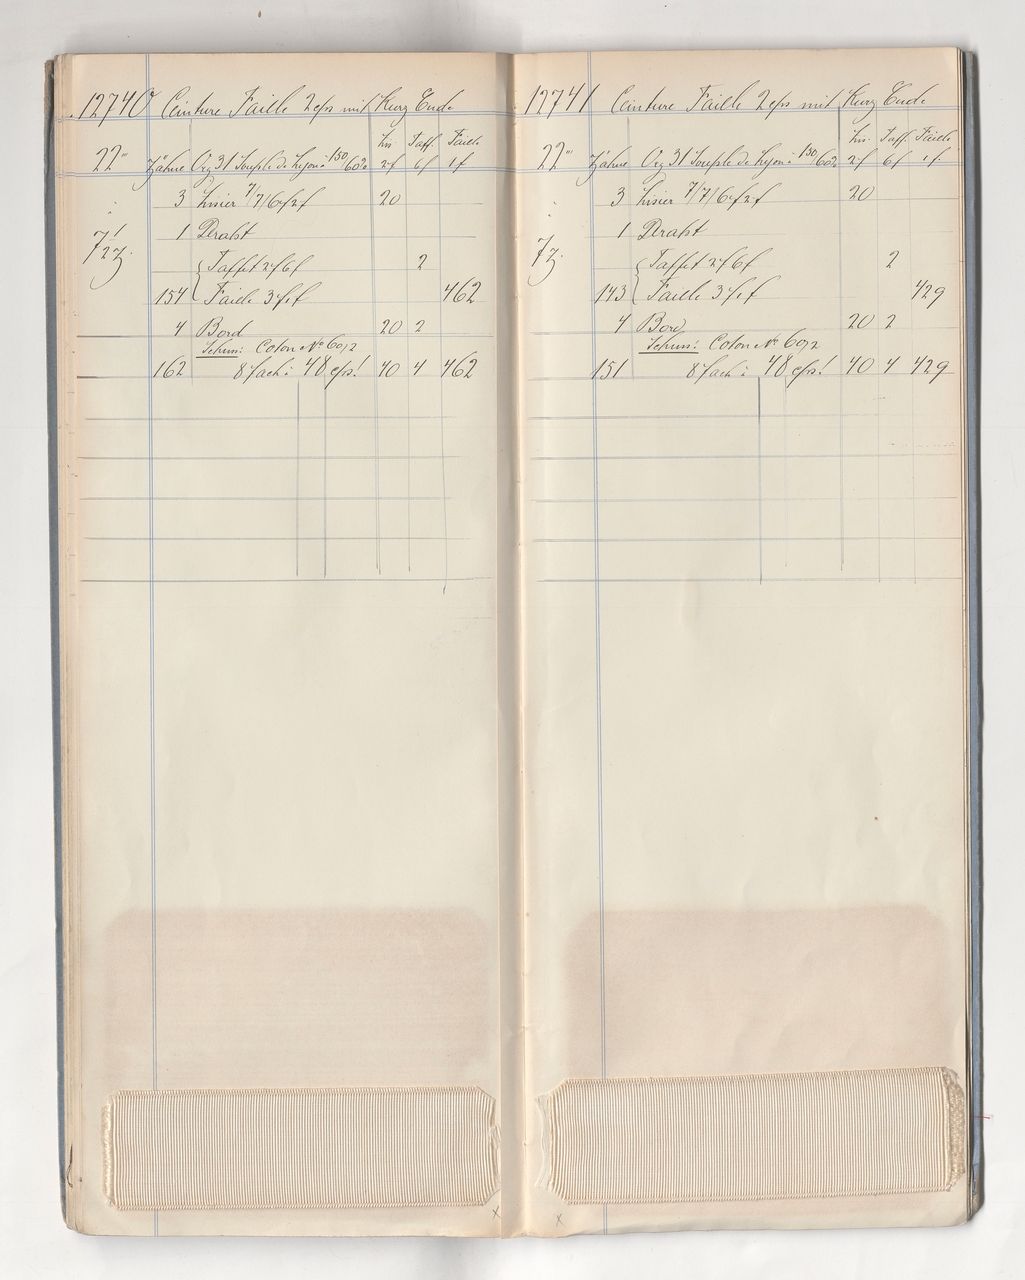 12740 Ceinture Faille 2 eps mit Kurz Ende
Lis. Taff. Faille
22''' Zähne Org 31 Souple de Lyon à 130/60% 2f 6f 1f
3 Lisier 7/7/6f 2f 20
1 Draht
7½ Z.
Taffet 2f 6f 2
154 Faille 3f 1f 462
4 Bord 20 2
Schuss: Coton No 60/2
162 8 fach à 48 eps! 40 4 462
x
12741 Ceinture Faille 2 eps mit Kurz Ende
Lis. Taff. Faille
22''' Zähne Org 31 Souple de Lyon à 130/60% 2f 6f 1f
3 Lisier 7/7/6f 2f 20
1 Draht
7 Z.
Taffet 2f 6f 2
143 Faille 3f 1f 429
4 Bord 20 2
Schuss: Coton No 60/2
151 8 fach à 48 eps! 40 4 429
x